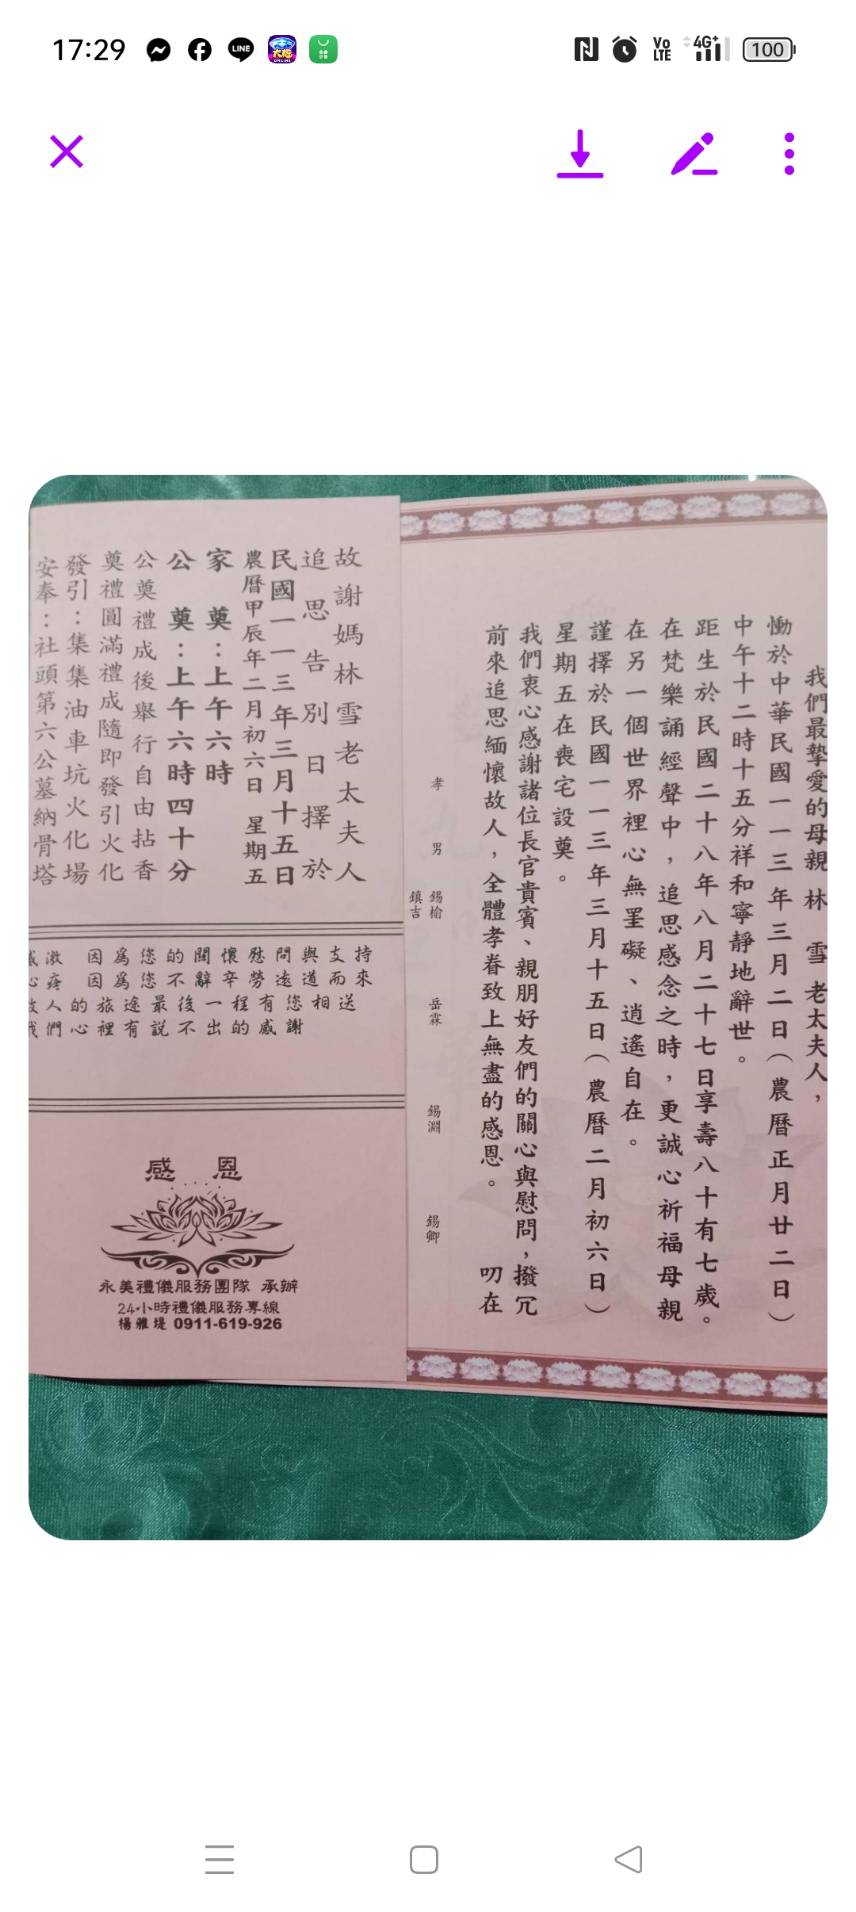 17:29
LINE
Vo LTE
4G+
100
我們最摯愛的母親 林 雪 老太夫人，
慟於中華民國一一三年三月二日（農曆正月廿二日）
中午十二時十五分祥和寧靜地辭世。
距生於民國二十八年八月二十七日享壽八十有七歲。
在梵樂誦經聲中，追思感念之時，更誠心祈福母親
在另一個世界裡心無罣礙、逍遙自在。
謹擇於民國一一三年三月十五日（農曆二月初六日）
星期五在喪宅設奠。
我們衷心感謝諸位長官貴賓、親朋好友們的關心與慰問，撥冗
前來追思緬懷故人，全體孝眷致上無盡的感恩。 叨在
孝 男 錫榆 岳霖 錫淵 錫卿
鎮吉
故謝媽林雪老太夫人
追思告別日擇於
民國一一三年三月十五日
農曆甲辰年二月初六日 星期五
家 奠：上午六時
公 奠：上午六時四十分
公奠禮成後舉行自由拈香
奠禮圓滿禮成隨即發引火化
發引：集集油車坑火化場
安奉：社頭第六公墓納骨塔
激 因為您的關懷慰問與支持
疼 因為您不辭辛勞遠道而來
人的旅途最後一程有您相送
們心裡有說不出的感謝
感 恩
永美禮儀服務團隊 承辦
24小時禮儀服務專線
楊雅堤 0911-619-926